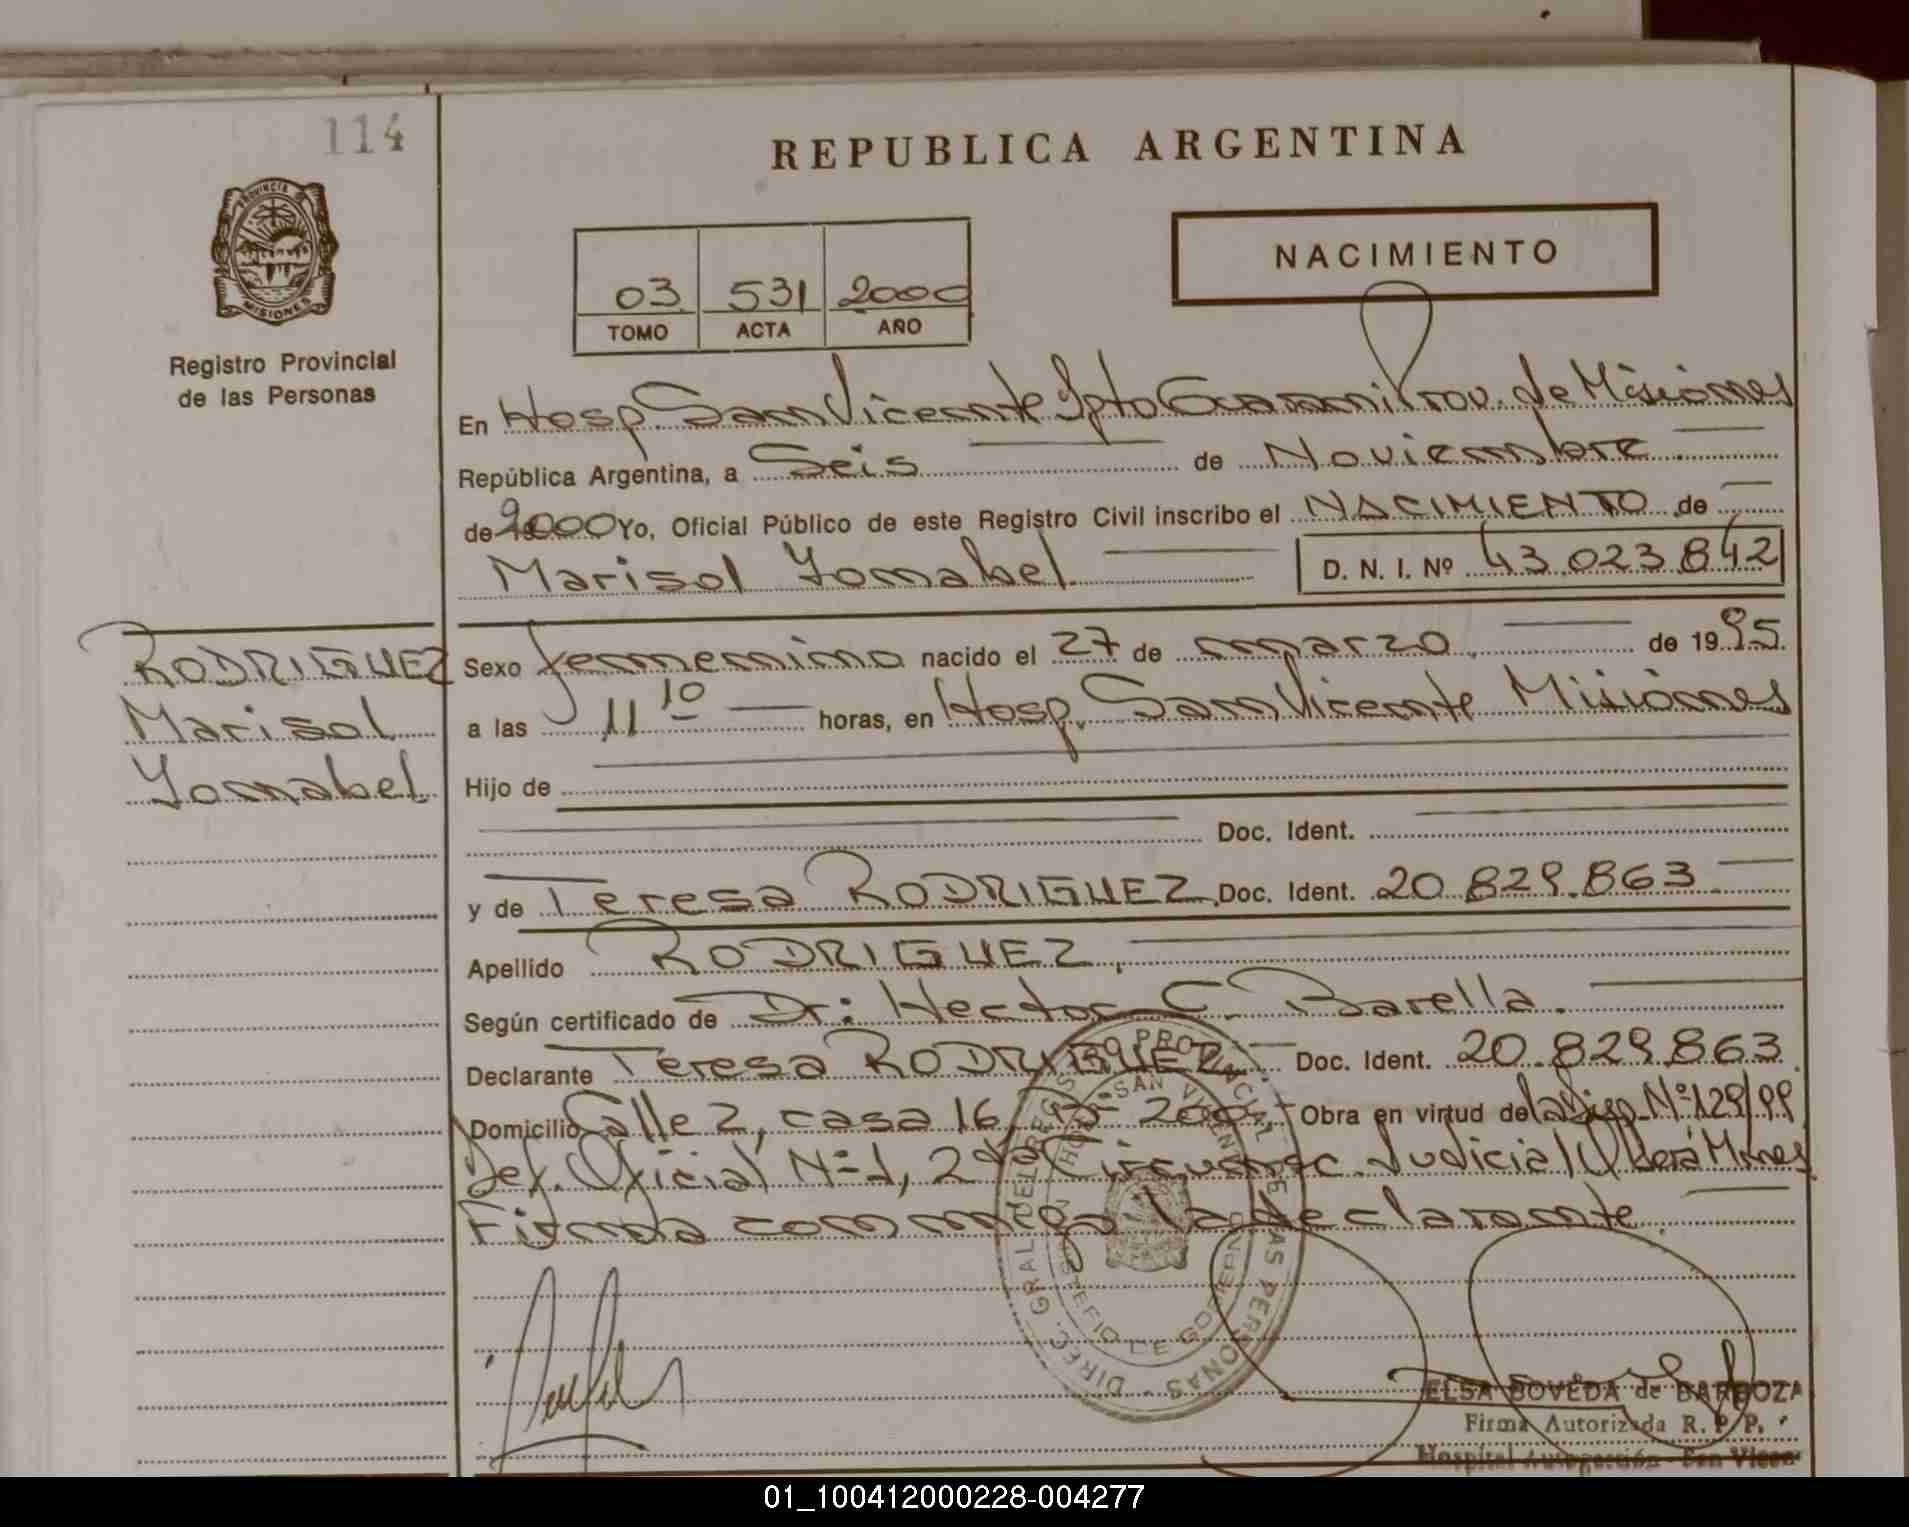 114
REPUBLICA ARGENTINA
PROVINCIA DE
MISIONES
Registro Provincial
de las Personas
03 531 2000
TOMO ACTA AÑO
NACIMIENTO
En Hosp. San Vicente Dpto Guarani Prov. de Misiones
República Argentina, a Seis de Noviembre
de 2000 Yo, Oficial Público de este Registro Civil inscribo el NACIMIENTO de
Marisol Yomabel D. N. I. Nº 43.023.842
RODRIGUEZ
Marisol
Yomabel
Sexo femenino nacido el 27 de marzo de 1995.
a las 11 10 horas, en Hosp. San Vicente Misiones
Hijo de
Doc. Ident.
y de Teresa RODRIGUEZ Doc. Ident. 20.829.863
Apellido RODRIGUEZ.
Según certificado de Dr: Hector C. Barella.
Declarante Teresa RODRIGUEZ Doc. Ident. 20.829.863
Domicilio Calle 2, casa 16, Bº 200 Obra en virtud de la Disp. Nº 129/99
Def. Oficial Nº 1, 2da Circunsc. Judicial Oberá Mnes
Firma conmigo la declarante.
DIREC. GRAL DEL REGISTRO PROVINCIAL DE LAS PERSONAS
SAN VICENTE
DE GOBIERNO
ELSA BOVEDA de BARBOZA
Firma Autorizada R. P. P.
Hospital Autogestión San Vicente
01_100412000228-004277